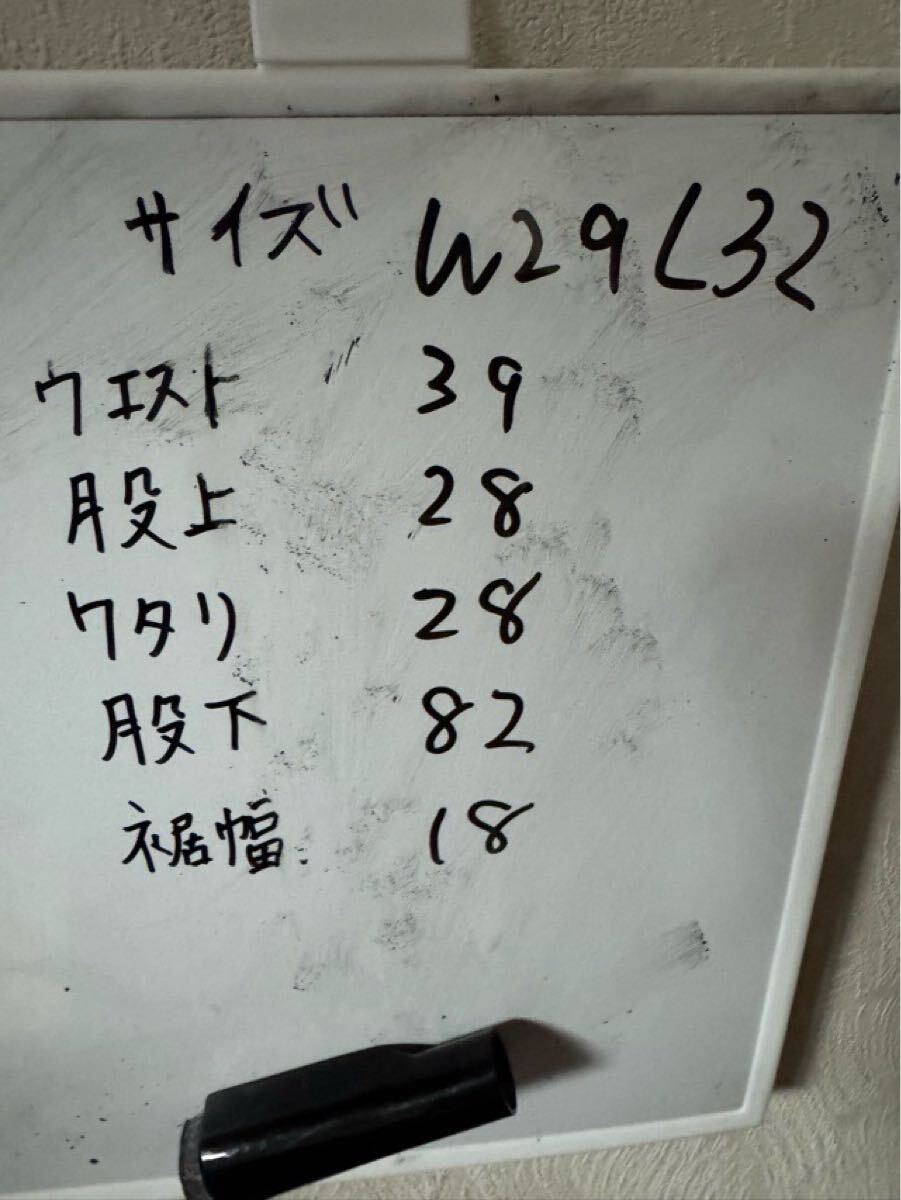 サイズ W29L32
ウエスト 39
股上 28
ワタリ 28
股下 82
裾幅 18